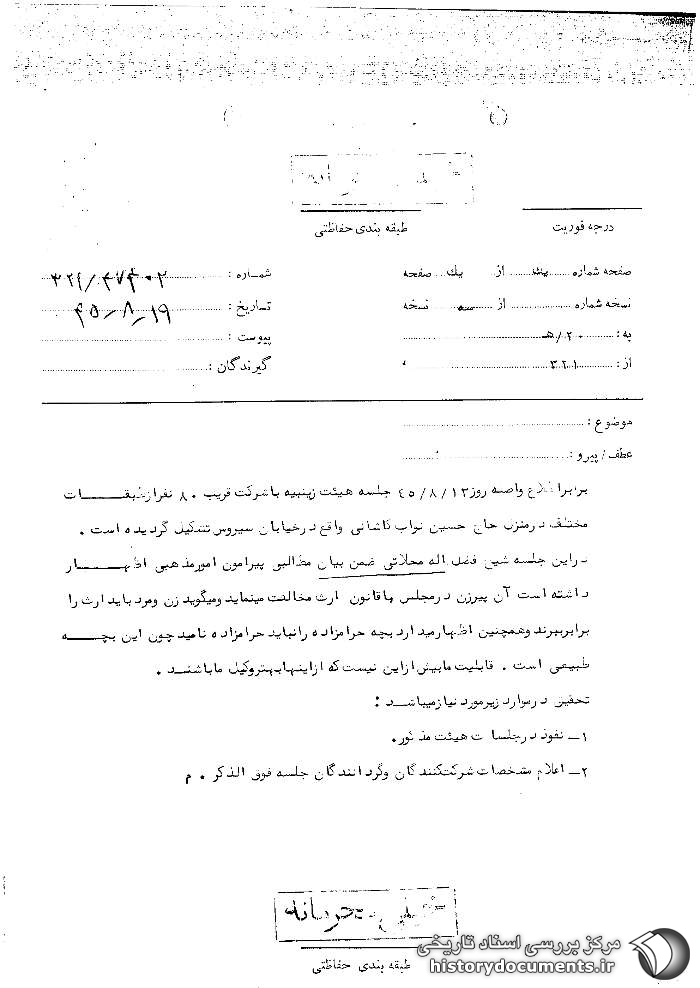 درجه فوریت
طبقه بندی حفاظتی
صفحه شماره یک از یک صفحه
شماره : ۳۲۱/۴۷۴۰۲
نسخه شماره از سه نسخه
تاریخ : ۴۵/۸/۱۹
به : ۲۰/ﻫ
پیوست :
از : ۳۲۱
گیرندگان :
موضوع :
عطف / پیرو :
برابر اطلاع واصله روز ۴۵/۸/۱۳ جلسه هیئت زینبیه با شرکت قریب ۸۰ نفر از طبقات
مختلف در منزل حاج حسین نواب کاشانی واقع در خیابان سیروس تشکیل گردیده است .
در این جلسه شیخ فضل اله محلاتی ضمن بیان مطالبی پیرامون امور مذهبی اظهار
داشته است آن پیرزن در مجلس با قانون ارث مخالفت مینماید و میگوید زن و مرد باید ارث را
برابر ببرند و همچنین اظهار میدارد بچه حرامزاده را نباید حرامزاده نامید چون این بچه
طبیعی است . قابلیت ما بیش از این نیست که از اینها بهتر وکیل ما باشند .
تحقیق در موارد زیر مورد نیاز میباشد :
۱ـ نفوذ در جلسات هیئت مذکور.
۲ـ اعلام مشخصات شرکت کنندگان و گردانندگان جلسه فوق الذکر . م
خیلی محرمانه
طبقه بندی حفاظتی
مرکز بررسی اسناد تاریخی
historydocuments.ir